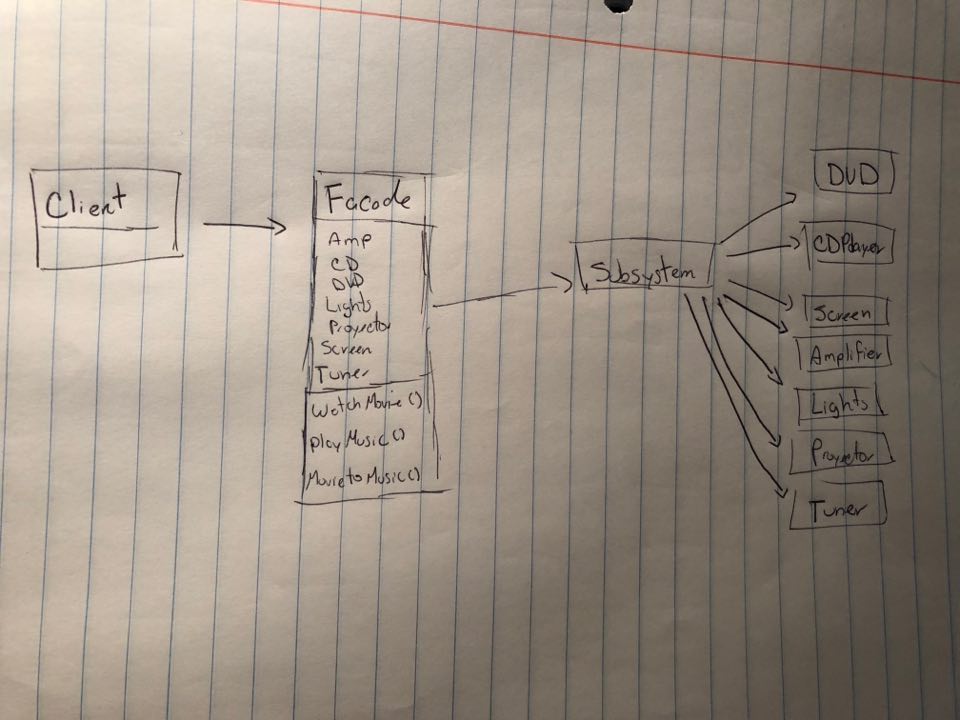 Client
Facade
Amp
CD
DVD
Lights
Proyector
Screen
Tuner
WatchMovie()
PlayMusic()
MovietoMusic()
Subsystem
DVD
CDPlayer
Screen
Amplifier
Lights
Proyector
Tuner